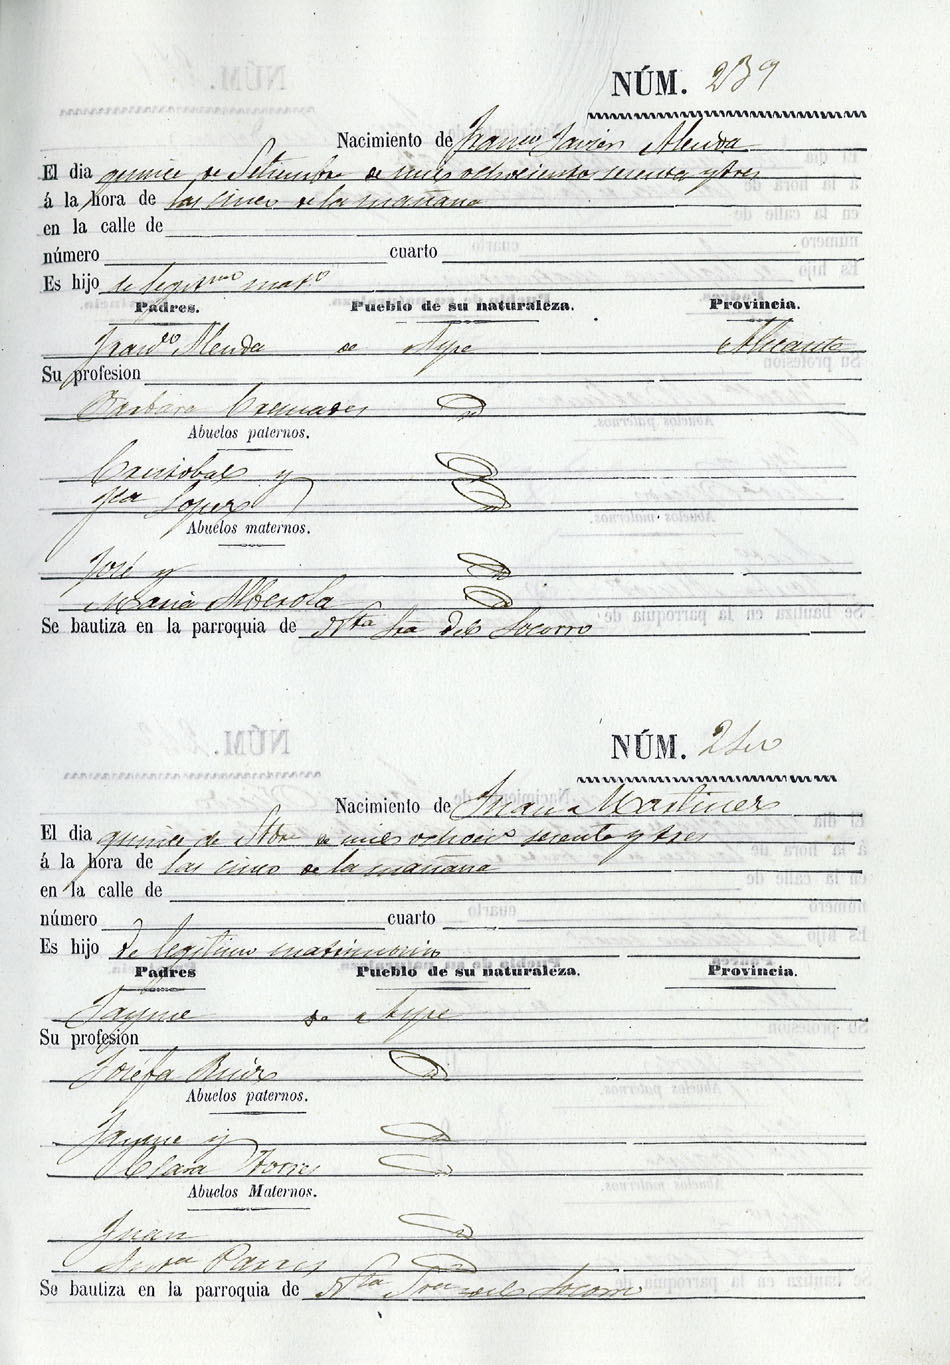 NÚM. 239
Nacimiento de Franco Javier Alenda
El dia quince de Setiembre de mil ochocientos sesenta y tres
á la hora de las cinco de la mañana
en la calle de
número cuarto
Es hijo de legitmo mato
Padres. Pueblo de su naturaleza. Provincia.
Franco Alenda de Aspe Alicante
Su profesion
Barbara Cremades id
Abuelos paternos.
Cristobal y id
Fca Lopez id
Abuelos maternos.
José y id
Maria Alberola id
Se bautiza en la parroquia de Ntra Sra del Socorro
NÚM. 240
Nacimiento de Juana Martinez
El dia quince de Stbre de mil ochocs sesenta y tres
á la hora de las cinco de la mañana
en la calle de
número cuarto
Es hijo de legitimo matrimonio
Padres Pueblo de su naturaleza. Provincia.
Jayme de Aspe
Su profesión
Josefa Ruiz id
Abuelos paternos.
Jayme y id
Clara Torres id
Abuelos Maternos.
Juan id
Anta id
Se bautiza en la parroquia de Ntra Sra del Socorro